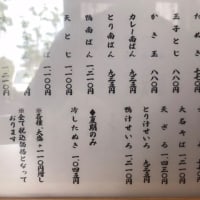 たぬき
玉子とじ 八八〇円
かき玉 八八〇円
カレー南ばん 九三五円
とり南ばん 九三五円
鴨南ばん 一二一〇円
天とじ 一二一〇円
一二一〇円
大名そば
天ざる 一四三〇円
とり汁せいろ 九三五円
鴨汁せいろ 一二一〇円
◆夏期のみ
冷したぬき 一〇四五円
※各種 大盛+一一〇円増し
※全て税込価格となって
おります